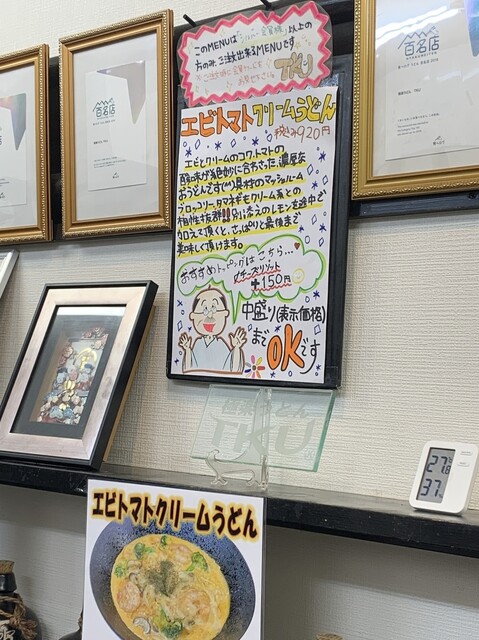 このMENUは「シルバー会員様」以上の
方のみ、ご注文出来るMENUです。
TKU
エビトマトクリームうどん
税込み920円
エビとクリームのコク、トマトの
酸味が絶妙に合わさった濃厚な
おうどんです(^^)具材のマッシュルーム
ブロッコリー、タマネギもクリーム系との
相性抜群!!別添えのレモンを途中で
加えて頂くと、さっぱりと最後まで
美味しく頂けます。
おすすめトッピングはこちら…♥
チーズリゾット
+150円
中盛り(表示価格)
までOKです
百名店
百名店
百名店
極楽うどん
TKU
エビトマトクリームうどん
27.8
37